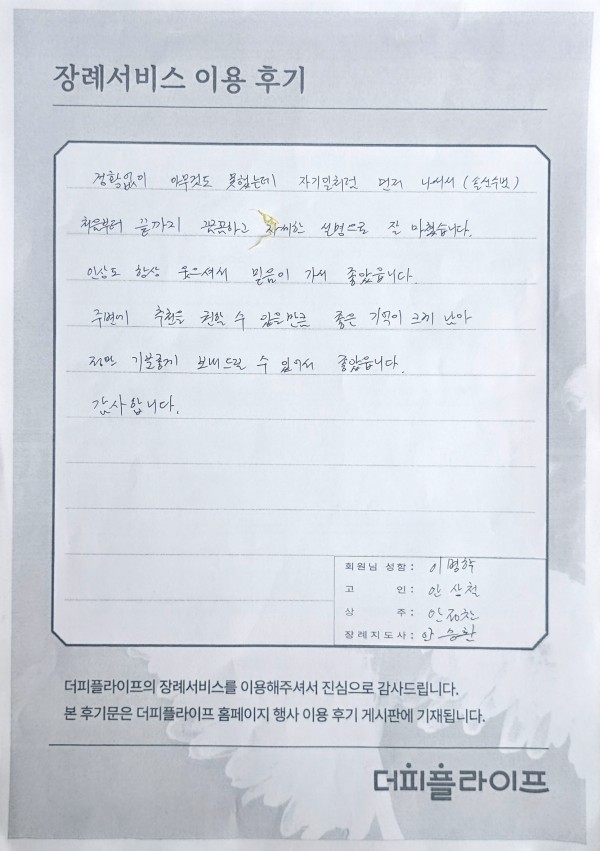 장례서비스 이용 후기
정황없이 아무것도 못했는데 자기일처럼 먼저 나서서 (솔선수범)
처음부터 끝까지 꼿꼿하고 자세한 설명으로 잘 마쳤습니다.
인상도 항상 웃으셔서 믿음이 가서 좋았읍니다.
주변에 추천을 권할 수 있을만큼 좋은 기억이 크게 남아
정말 기분좋게 보내드릴 수 있어서 좋았읍니다.
감사합니다.
회원님 성함: 이명학
고 인: 안상철
상 주: 안정찬
장례지도사: 안승환
더피플라이프의 장례서비스를 이용해주셔서 진심으로 감사드립니다.
본 후기문은 더피플라이프 홈페이지 행사 이용 후기 게시판에 기재됩니다.
더피플라이프